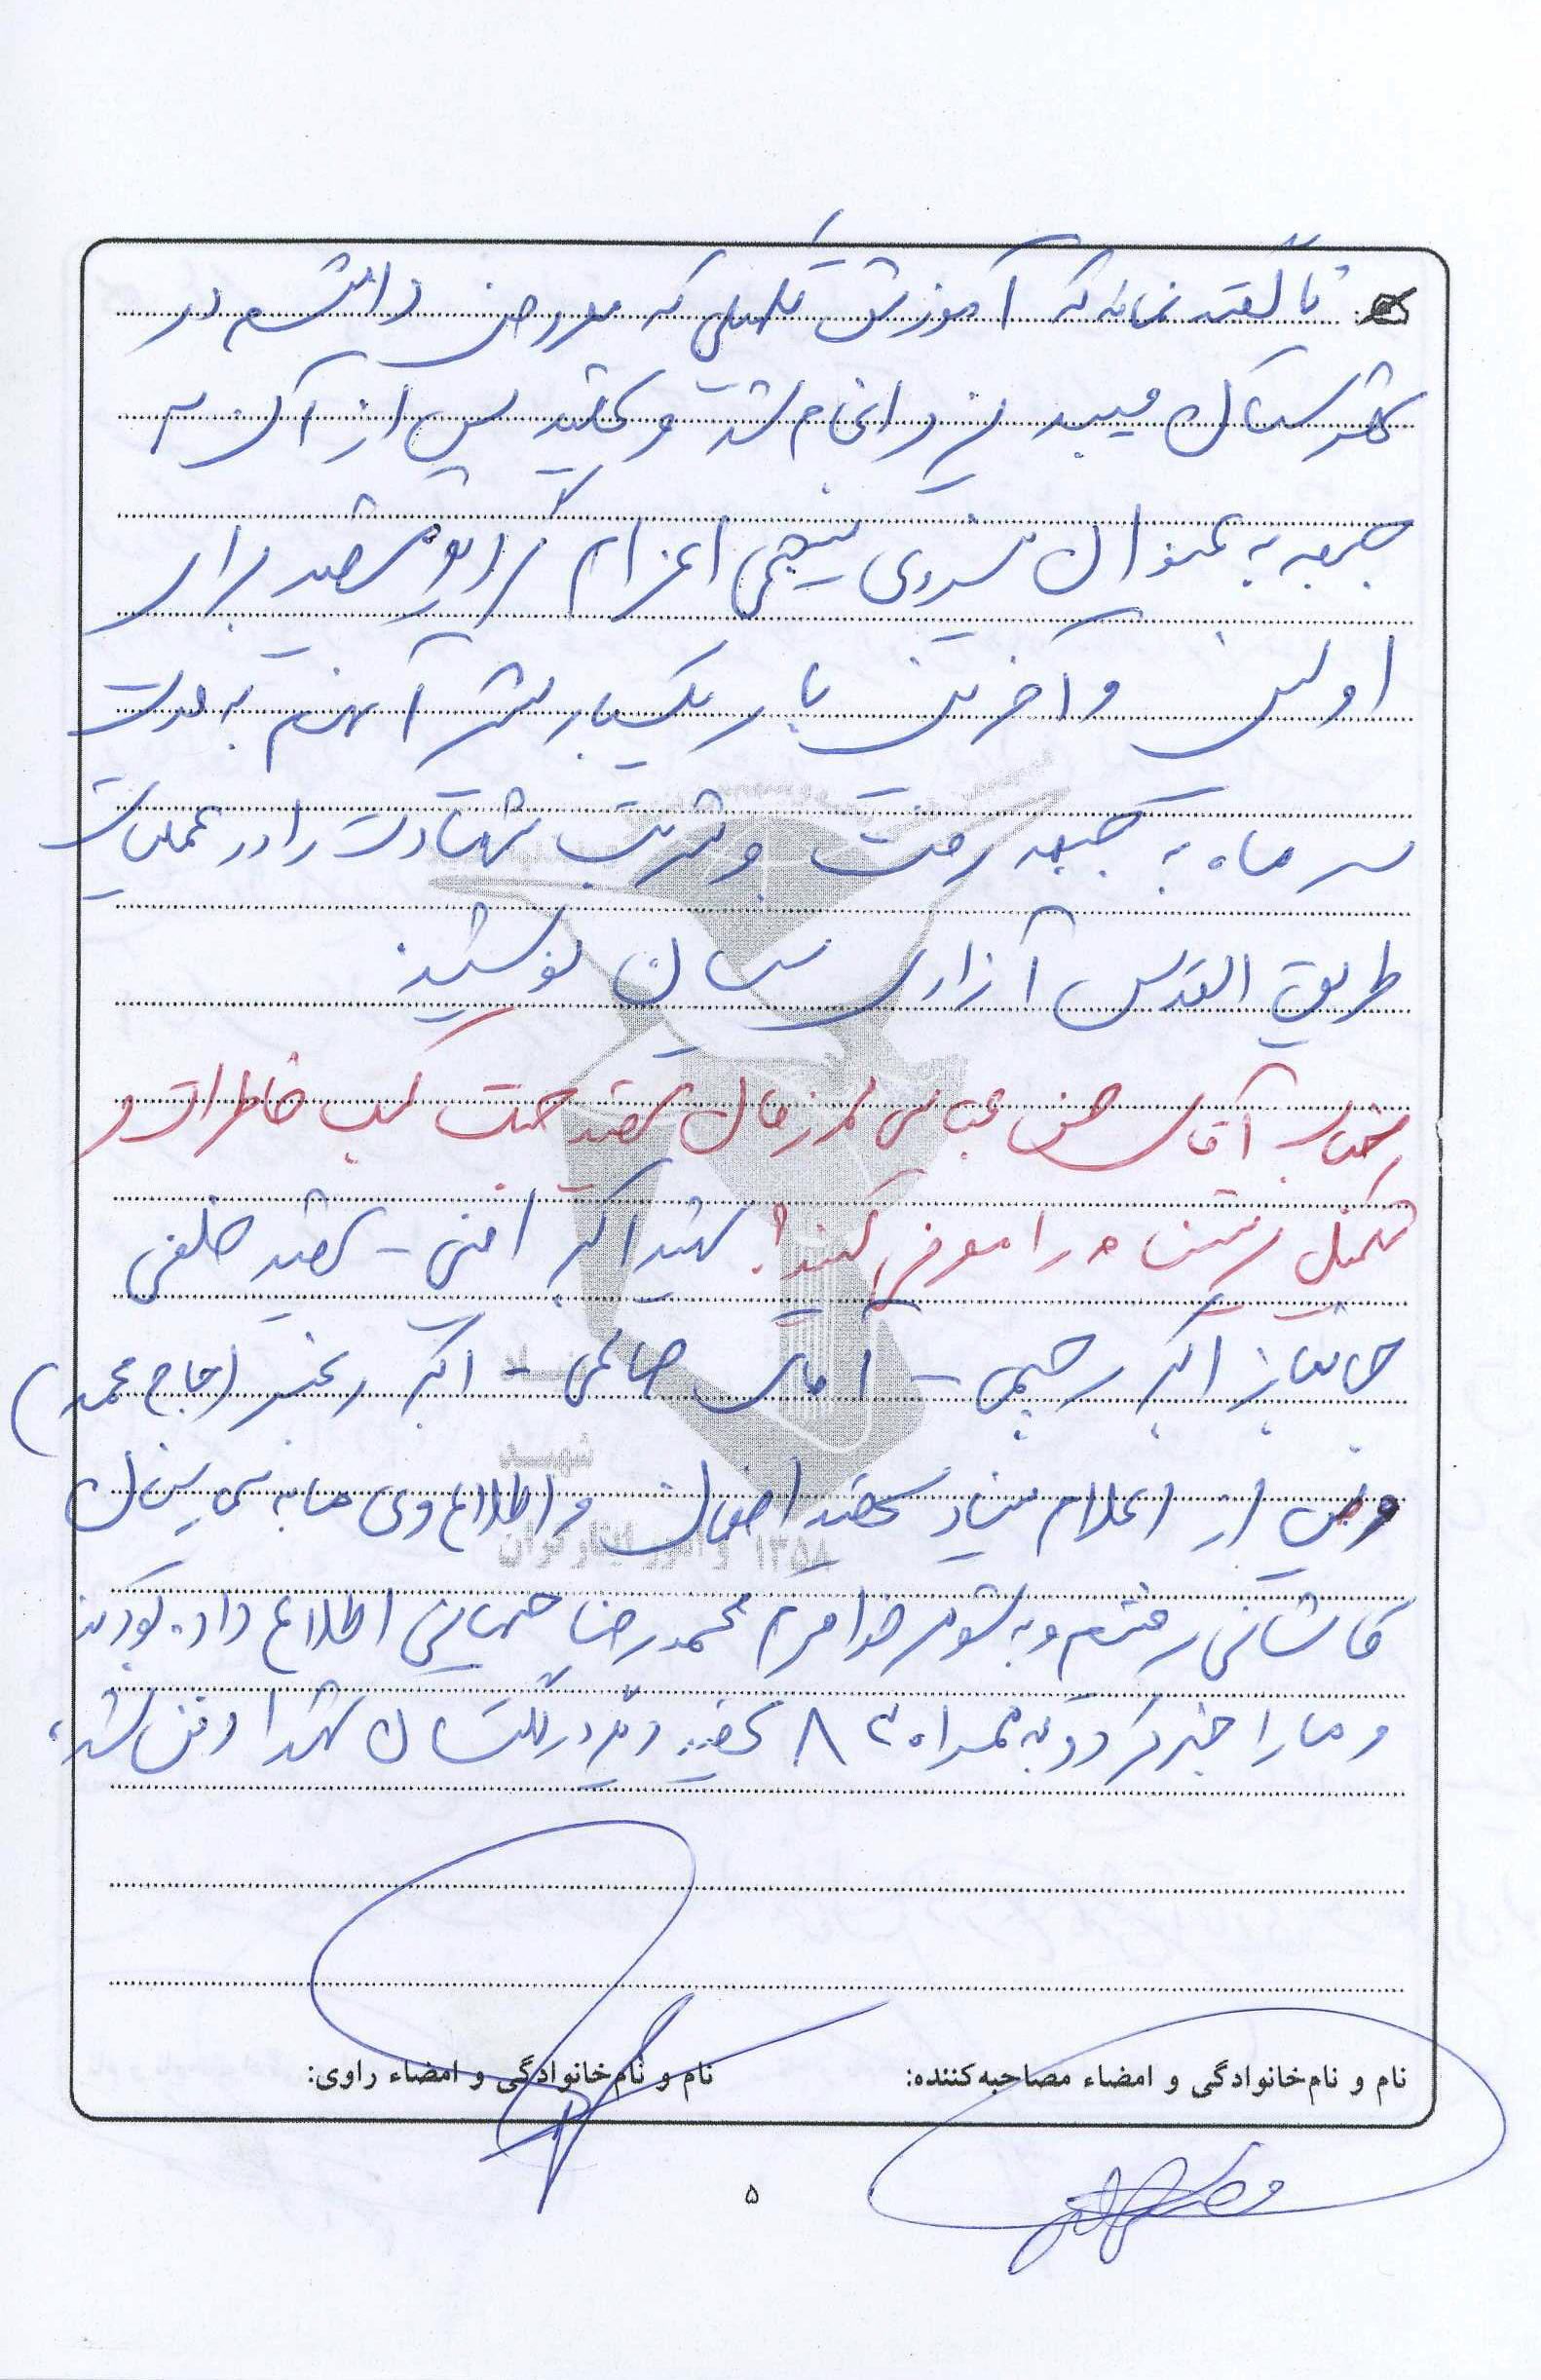 ناگفته نمانه که آموزش تکمیلی که معروض داشتم در
شهرستان میبد یزد انجام شد و شهید پس از آن به
جبهه به عنوان نیروی بسیجی اعزام گردید شهید برای
اولین و آخرین بار یکبار بیشتر آنهم به مدت
سه ماه به جبهه رفت و شربت شهادت را در عملیات
طریق القدس آزادی بستان نوشید.
جناب آقای حسن عباسی همرزمان شهید جهت کسب خاطرات و
تکمیل پرسشنامه را معرفی کنید؟ شهید اکبر امنی - شهید خلفی
جانباز اکبر رحیمی - آقای صالحی - اکبر رنجبر (حاج محمد)
و پس از اعلام بنیاد شهید اصفهان و اطلاع وی ما به بیمارستان
کاشانی رفتیم و به شوهر خواهرم محمدرضا جهانی اطلاع داده بودند
و ما را خبر کرد و به همراه ۸ شهید دیگر در گلستان شهدا دفن شد.
نام و نام‌خانوادگی و امضاء مصاحبه‌کننده:
نام و نام‌خانوادگی و امضاء راوی:
شهید
۱۳۵۸ و امور ایثارگران
۵